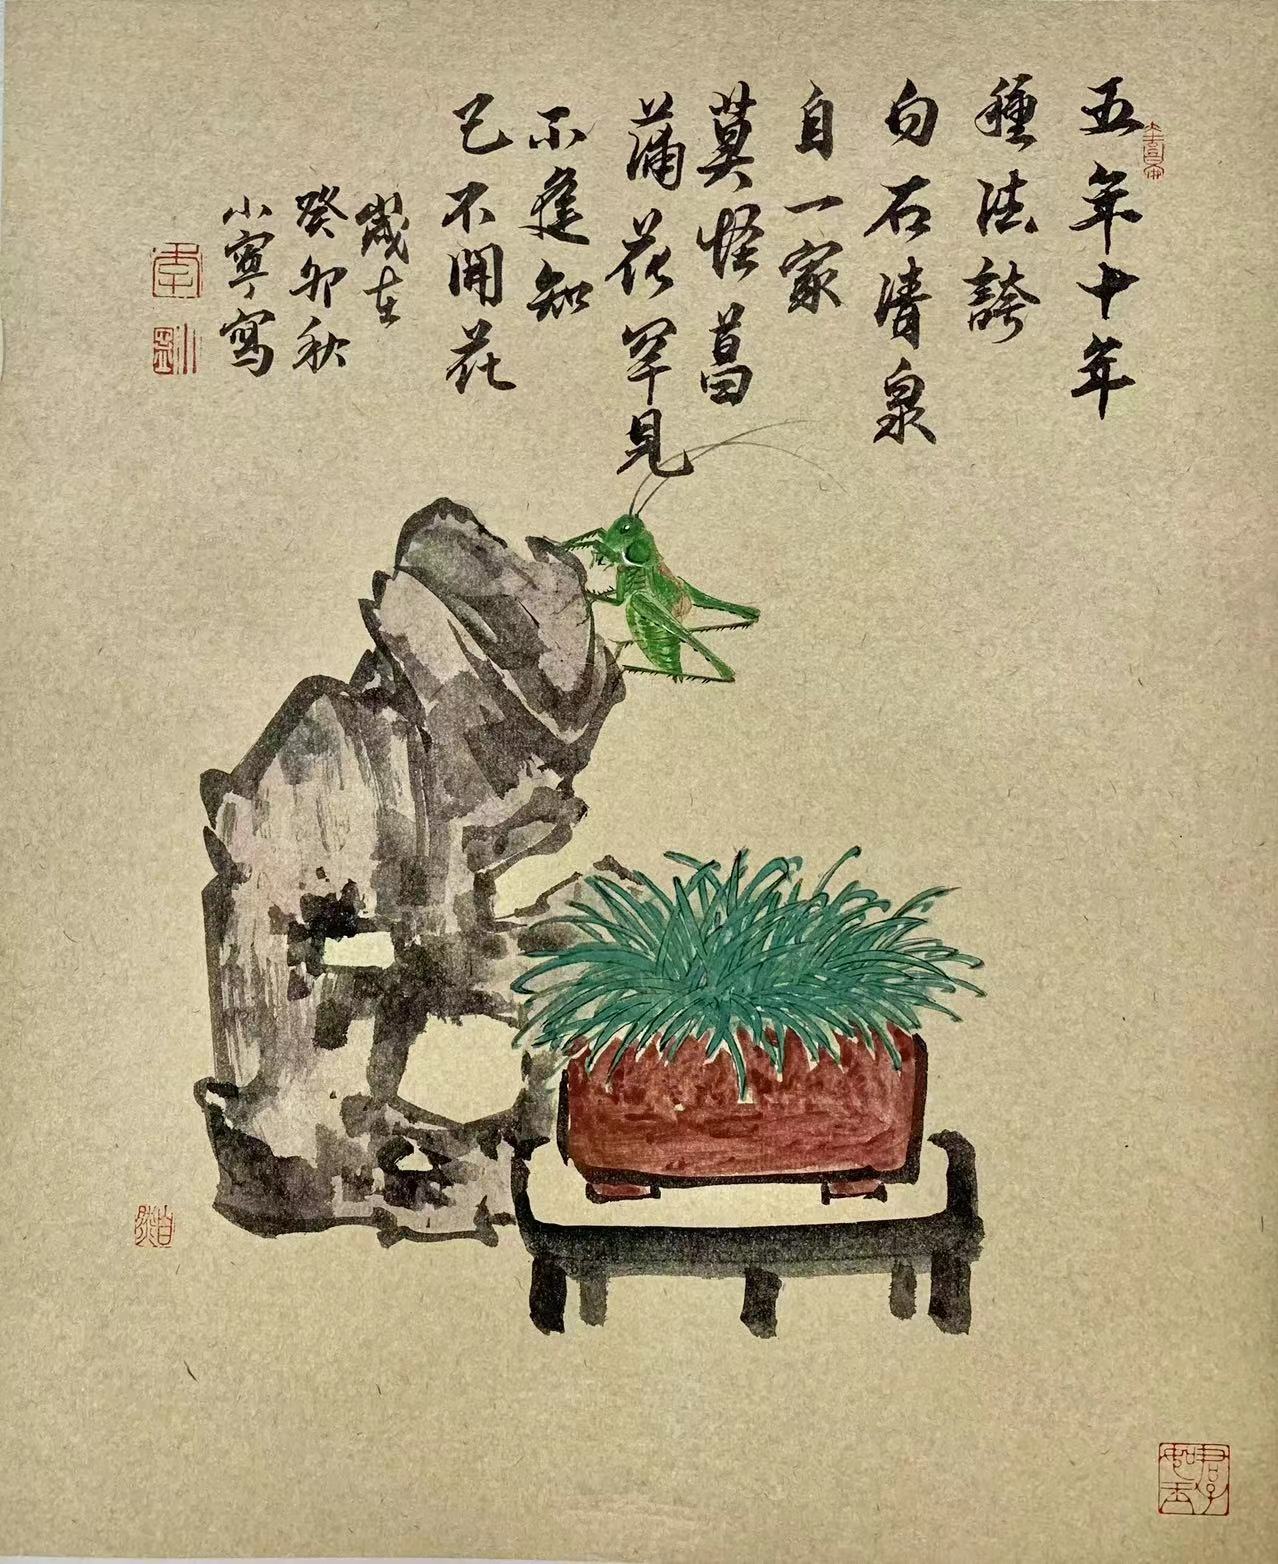 五年十年
種法誇
白石清泉
自一家
莫怪菖
蒲花罕見
不逢知
己不開花
歲在
癸卯秋
小寧寫
自然
君子如玉